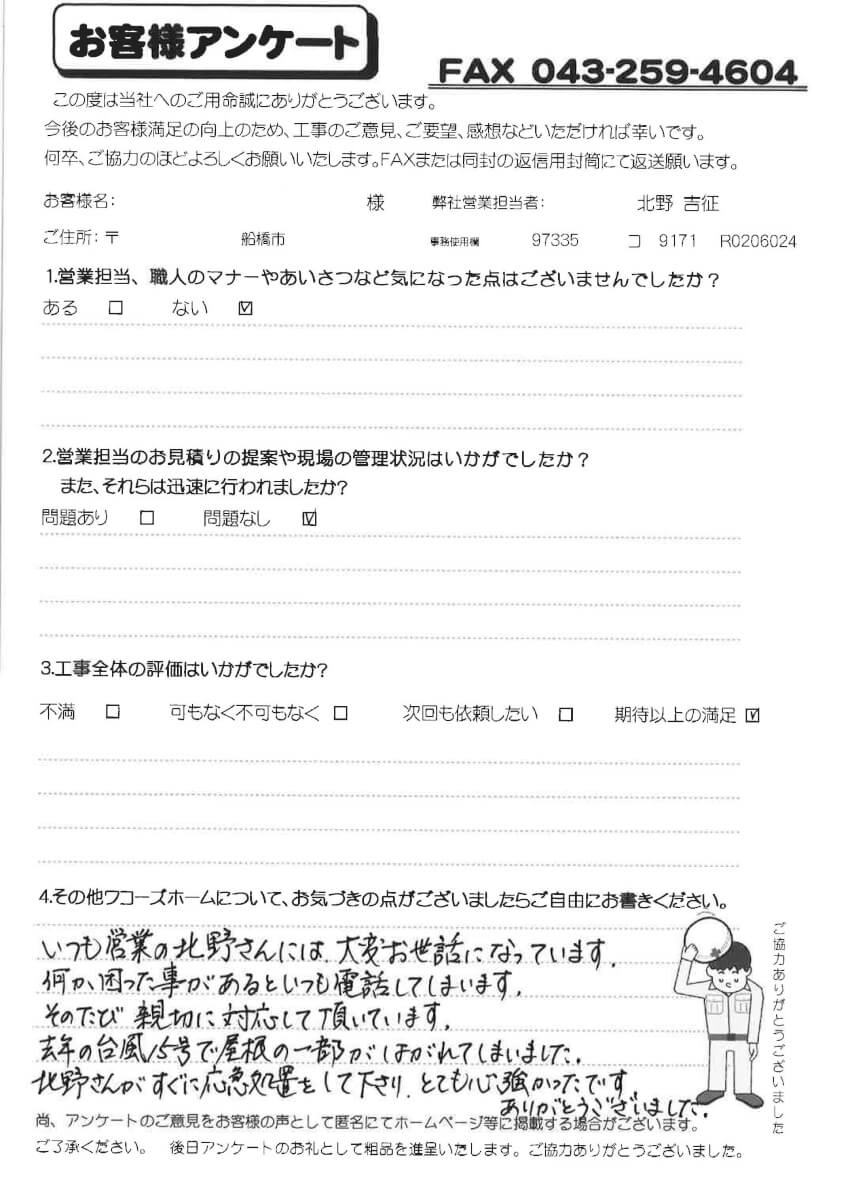 お客様アンケート
FAX 043-259-4604
この度は当社へのご用命誠にありがとうございます。
今後のお客様満足の向上のため、工事のご意見、ご要望、感想などいただければ幸いです。
何卒、ご協力のほどよろしくお願いいたします。FAXまたは同封の返信用封筒にて返送願います。
お客様名: 様 弊社営業担当者: 北野 吉征
ご住所:〒 船橋市 事務使用欄 97335 コ 9171 R0206024
1.営業担当、職人のマナーやあいさつなど気になった点はございませんでしたか?
ある □ ない ☑
2.営業担当のお見積りの提案や現場の管理状況はいかがでしたか?
また、それらは迅速に行われましたか?
問題あり □ 問題なし ☑
3.工事全体の評価はいかがでしたか?
不満 □ 可もなく不可もなく □ 次回も依頼したい □ 期待以上の満足 ☑
4.その他ワコーズホームについて、お気づきの点がございましたらご自由にお書きください。
いつも営業の北野さんには、大変お世話になっています。
何か、困った事があるといつも電話してしまいます。
そのたび 親切に対応して頂いています。
去年の台風15号で屋根の一部がはがれてしまいました。
北野さんがすぐに応急処置をして下さり、とても心強かったです。
ありがとうございました。
ご協力ありがとうございました
尚、アンケートのご意見をお客様の声として匿名にてホームページ等に掲載する場合がございます。
ご了承ください。 後日アンケートのお礼として粗品を進呈いたします。ご協力ありがとうございました。